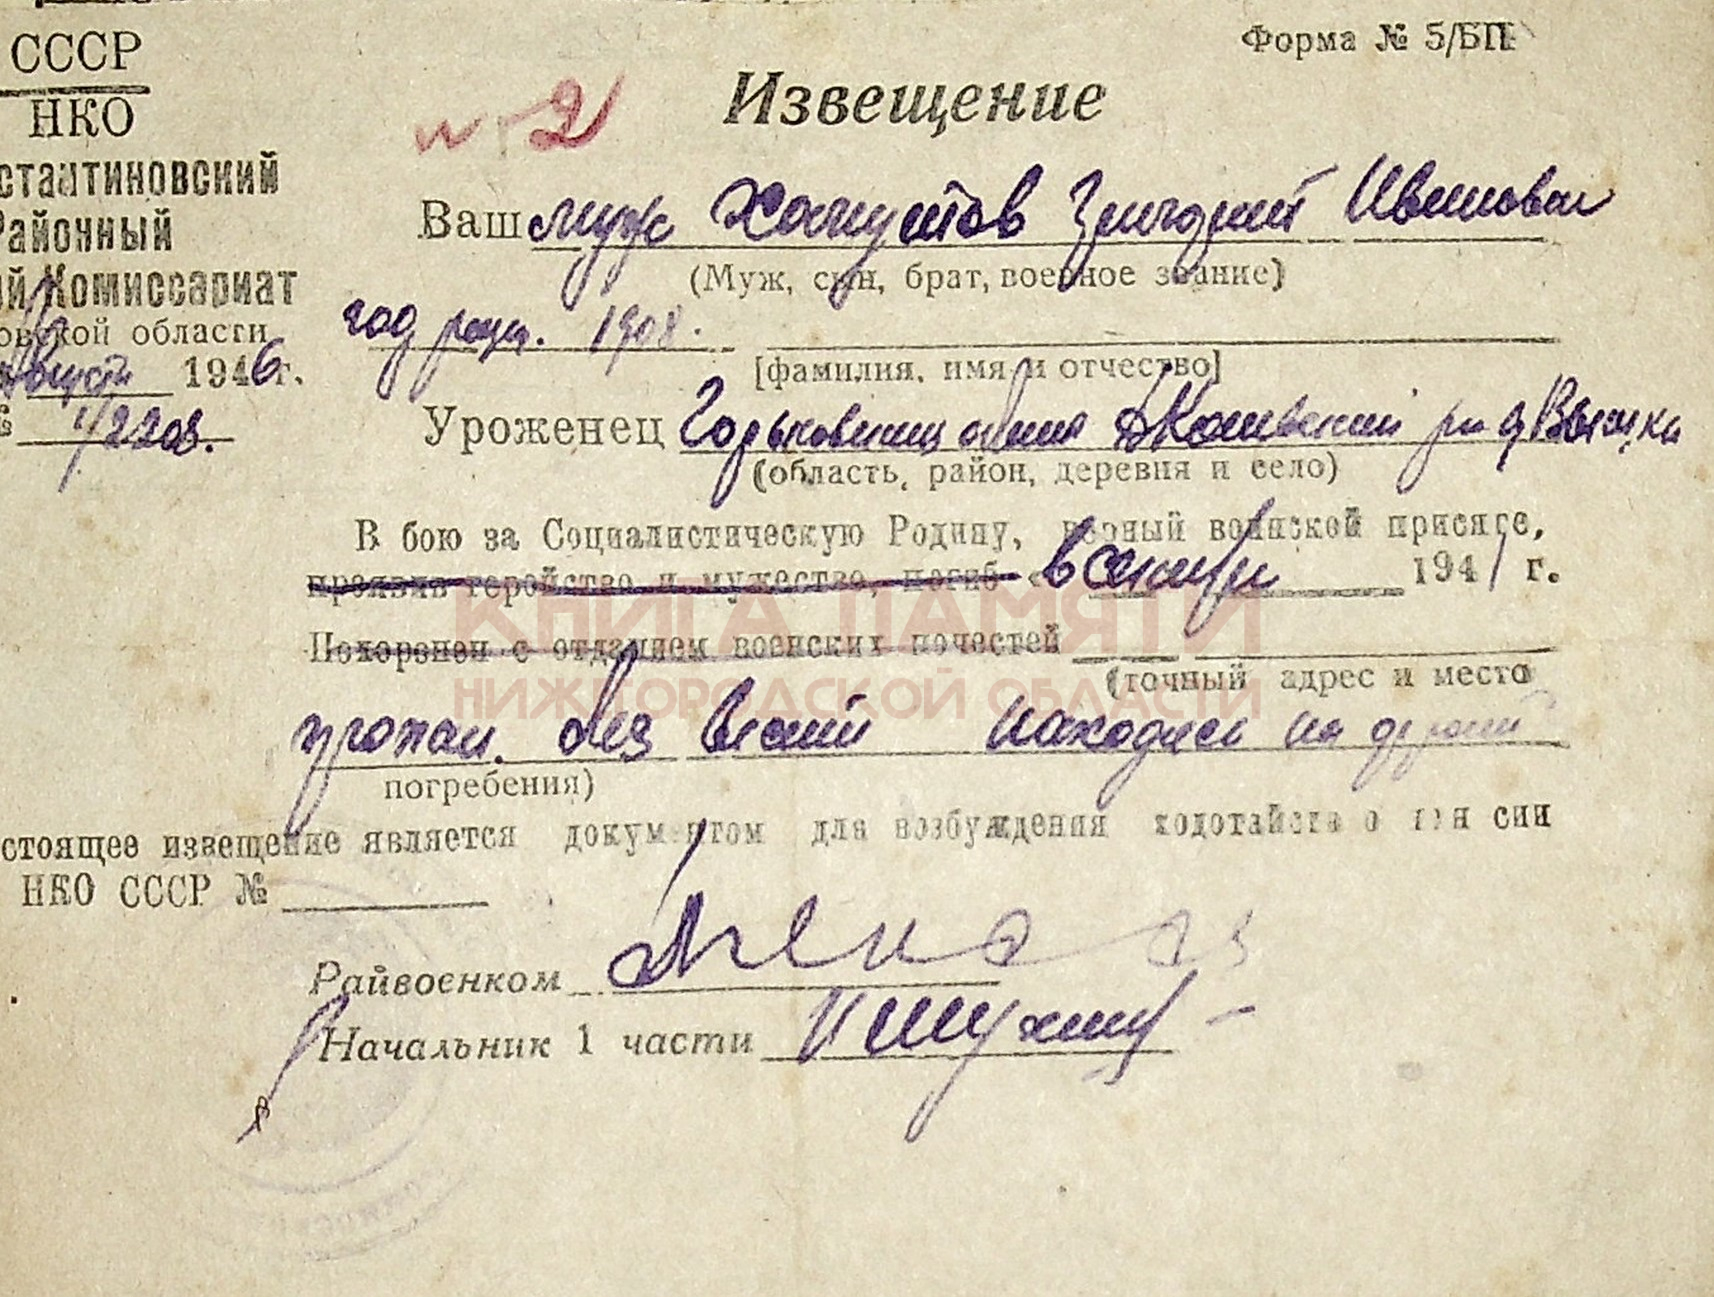 СССР
НКО
стантиновский
Районный
ий Комиссариат
овской области
1946 г.
№ 1/2208.
Форма № 5/БП
№ 2
Извещение
Ваш муж Хапугтов Григорий Иванович
(Муж, сын, брат, военное звание)
год рожд. 1908.
[фамилия, имя и отчество]
Уроженец Горьковская обл. р-н д
(область, район, деревня и село)
В бою за Социалистическую Родину, верный воинской присяге,
проявив геройство и мужество, погиб « в 1941 г.
Похоронен с отданием воинских почестей
(точный адрес и место
пропал без вести находясь на фронте
погребения)
стоящее извещение является документом для возбуждения ходотайства о пенсии
НКО СССР №
Райвоенком
Начальник 1 части
КНИГА ПАМЯТИ
НИЖЕГОРОДСКОЙ ОБЛАСТИ